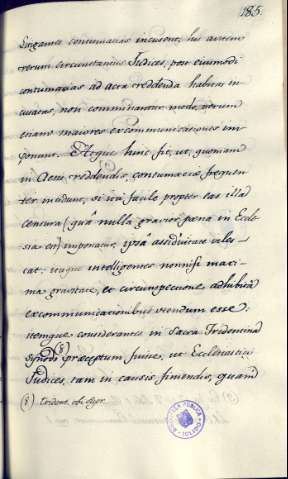 185.
litigantes contumacias incusent, his autem
rerum circunstantiis Judices, post eiusmodi
contumacias ad acta reddenda habitas in
curatas, non comminantur modo, verum
etiam maiores excommunicationes im
ponunt. Atque hinc fit, ut, quoniam
in Actis reddendis, contumacia frequen
ter incidunt, si ita facile propter eas illa
censura (quâ nulla gravior poena in Eccle
sia est) imponatur, ipsâ assiduitate viles-
cat: itaque intelligentes nonnisi maxi
ma gravitate, et circunspectione adhibita
excommunicationibus utendum esse:
itemque considerantes in Sacra Tridentina
Synodo (8) praeceptum fuisse, ut Ecclesiastici
Judices, tam in causis finiendis, quam
(8) Trident. ubi supr.